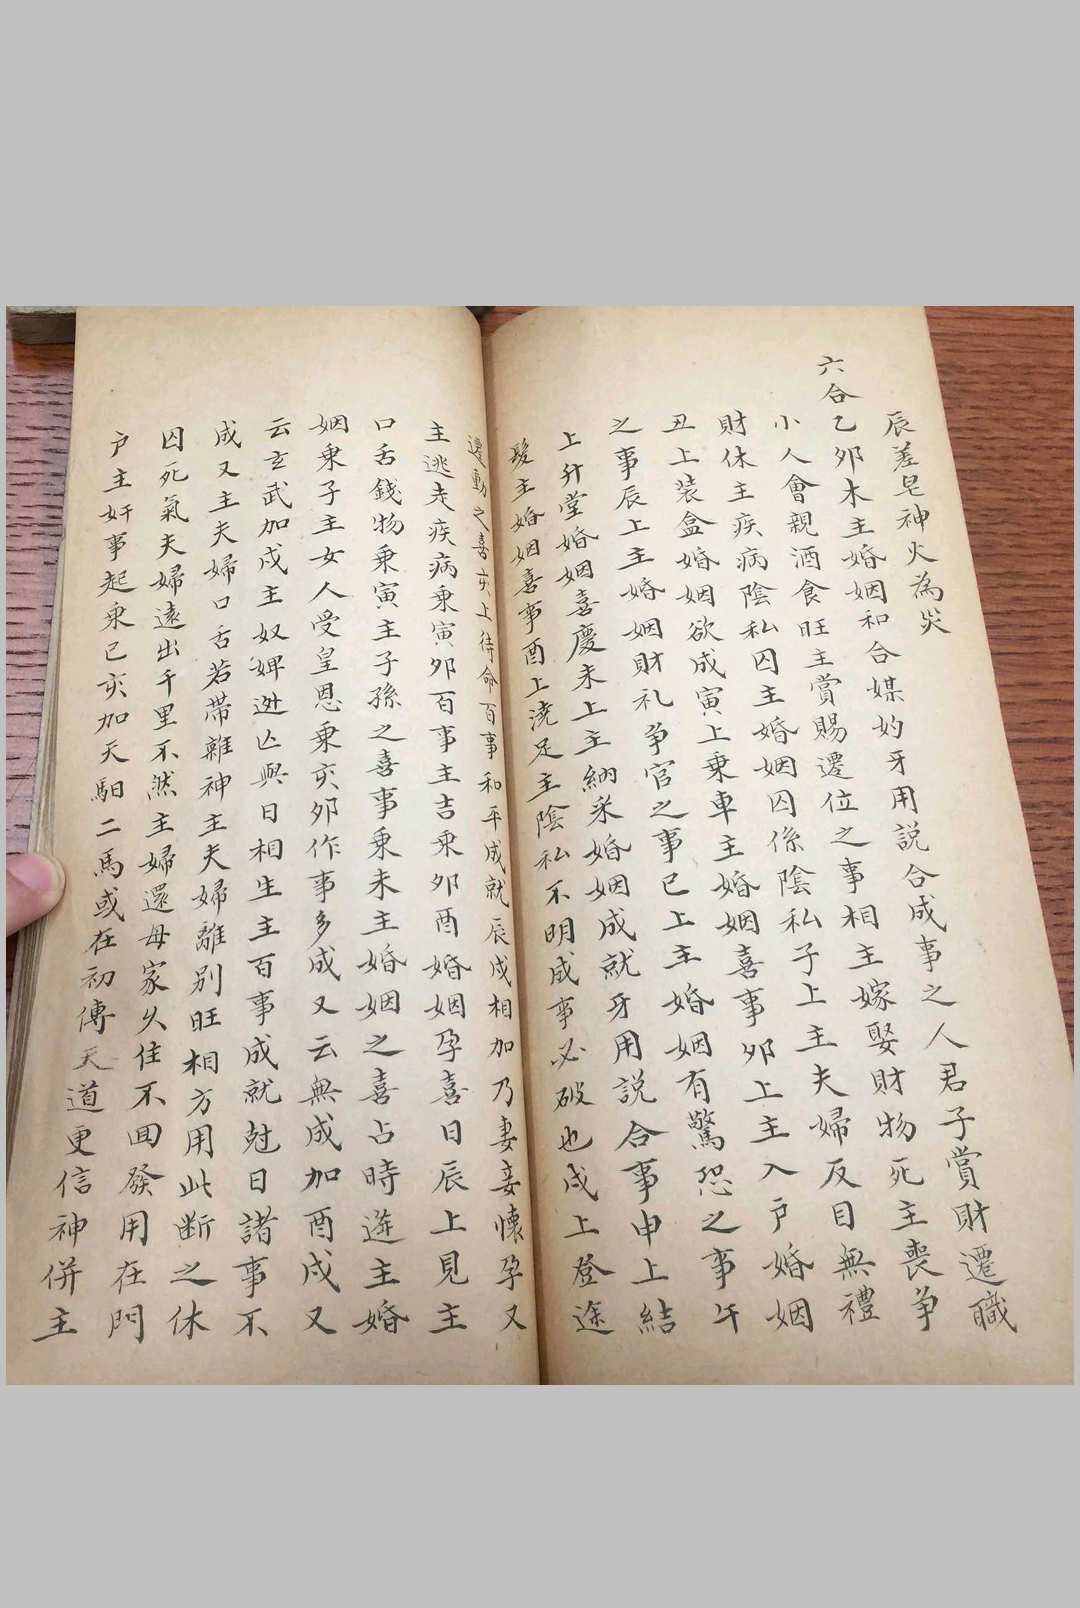 辰差皂神火為災
六合乙夘木主婚姻和合媒妁牙用説合成事之人君子賞財遷職
小人會親酒食旺主賞賜遷位之事相主嫁娶財物死主喪争
財休主疾病陰私囚主婚姻囚係陰私子上主夫婦反目無禮
丑上装盒婚姻欲成寅上乘車主婚姻喜事夘上主入户婚姻
之事辰上主婚姻財礼争官之事巳上主婚姻有驚恐之事午
上升堂婚姻喜慶未上主納采婚姻成就牙用説合事申上結
髮主婚姻喜事酉上澆足主陰私不明成事必破也戌上登途
遷動之喜亥上待命百事和平成就辰戌相加乃妻妾懷孕又
主逃走疾病乘寅夘百事主吉乘夘酉婚姻孕喜日辰上見主
口舌錢物乘寅主子孫之喜事乘未主婚姻之喜占時遊主婚
姻乘子主女人受皇恩乘亥夘作事多成又云無成加酉戌又
云玄武加戌主奴婢逃亾與日相生主百事成就尅日諸事不
成又主夫婦口舌若帶雜神主夫婦離別旺相方用此断之休
囚死氣夫婦遠出千里不然主婦還母家久住不回發用在門
户主奸事起乘巳亥加天馹二馬或在初傳天道更信神併主